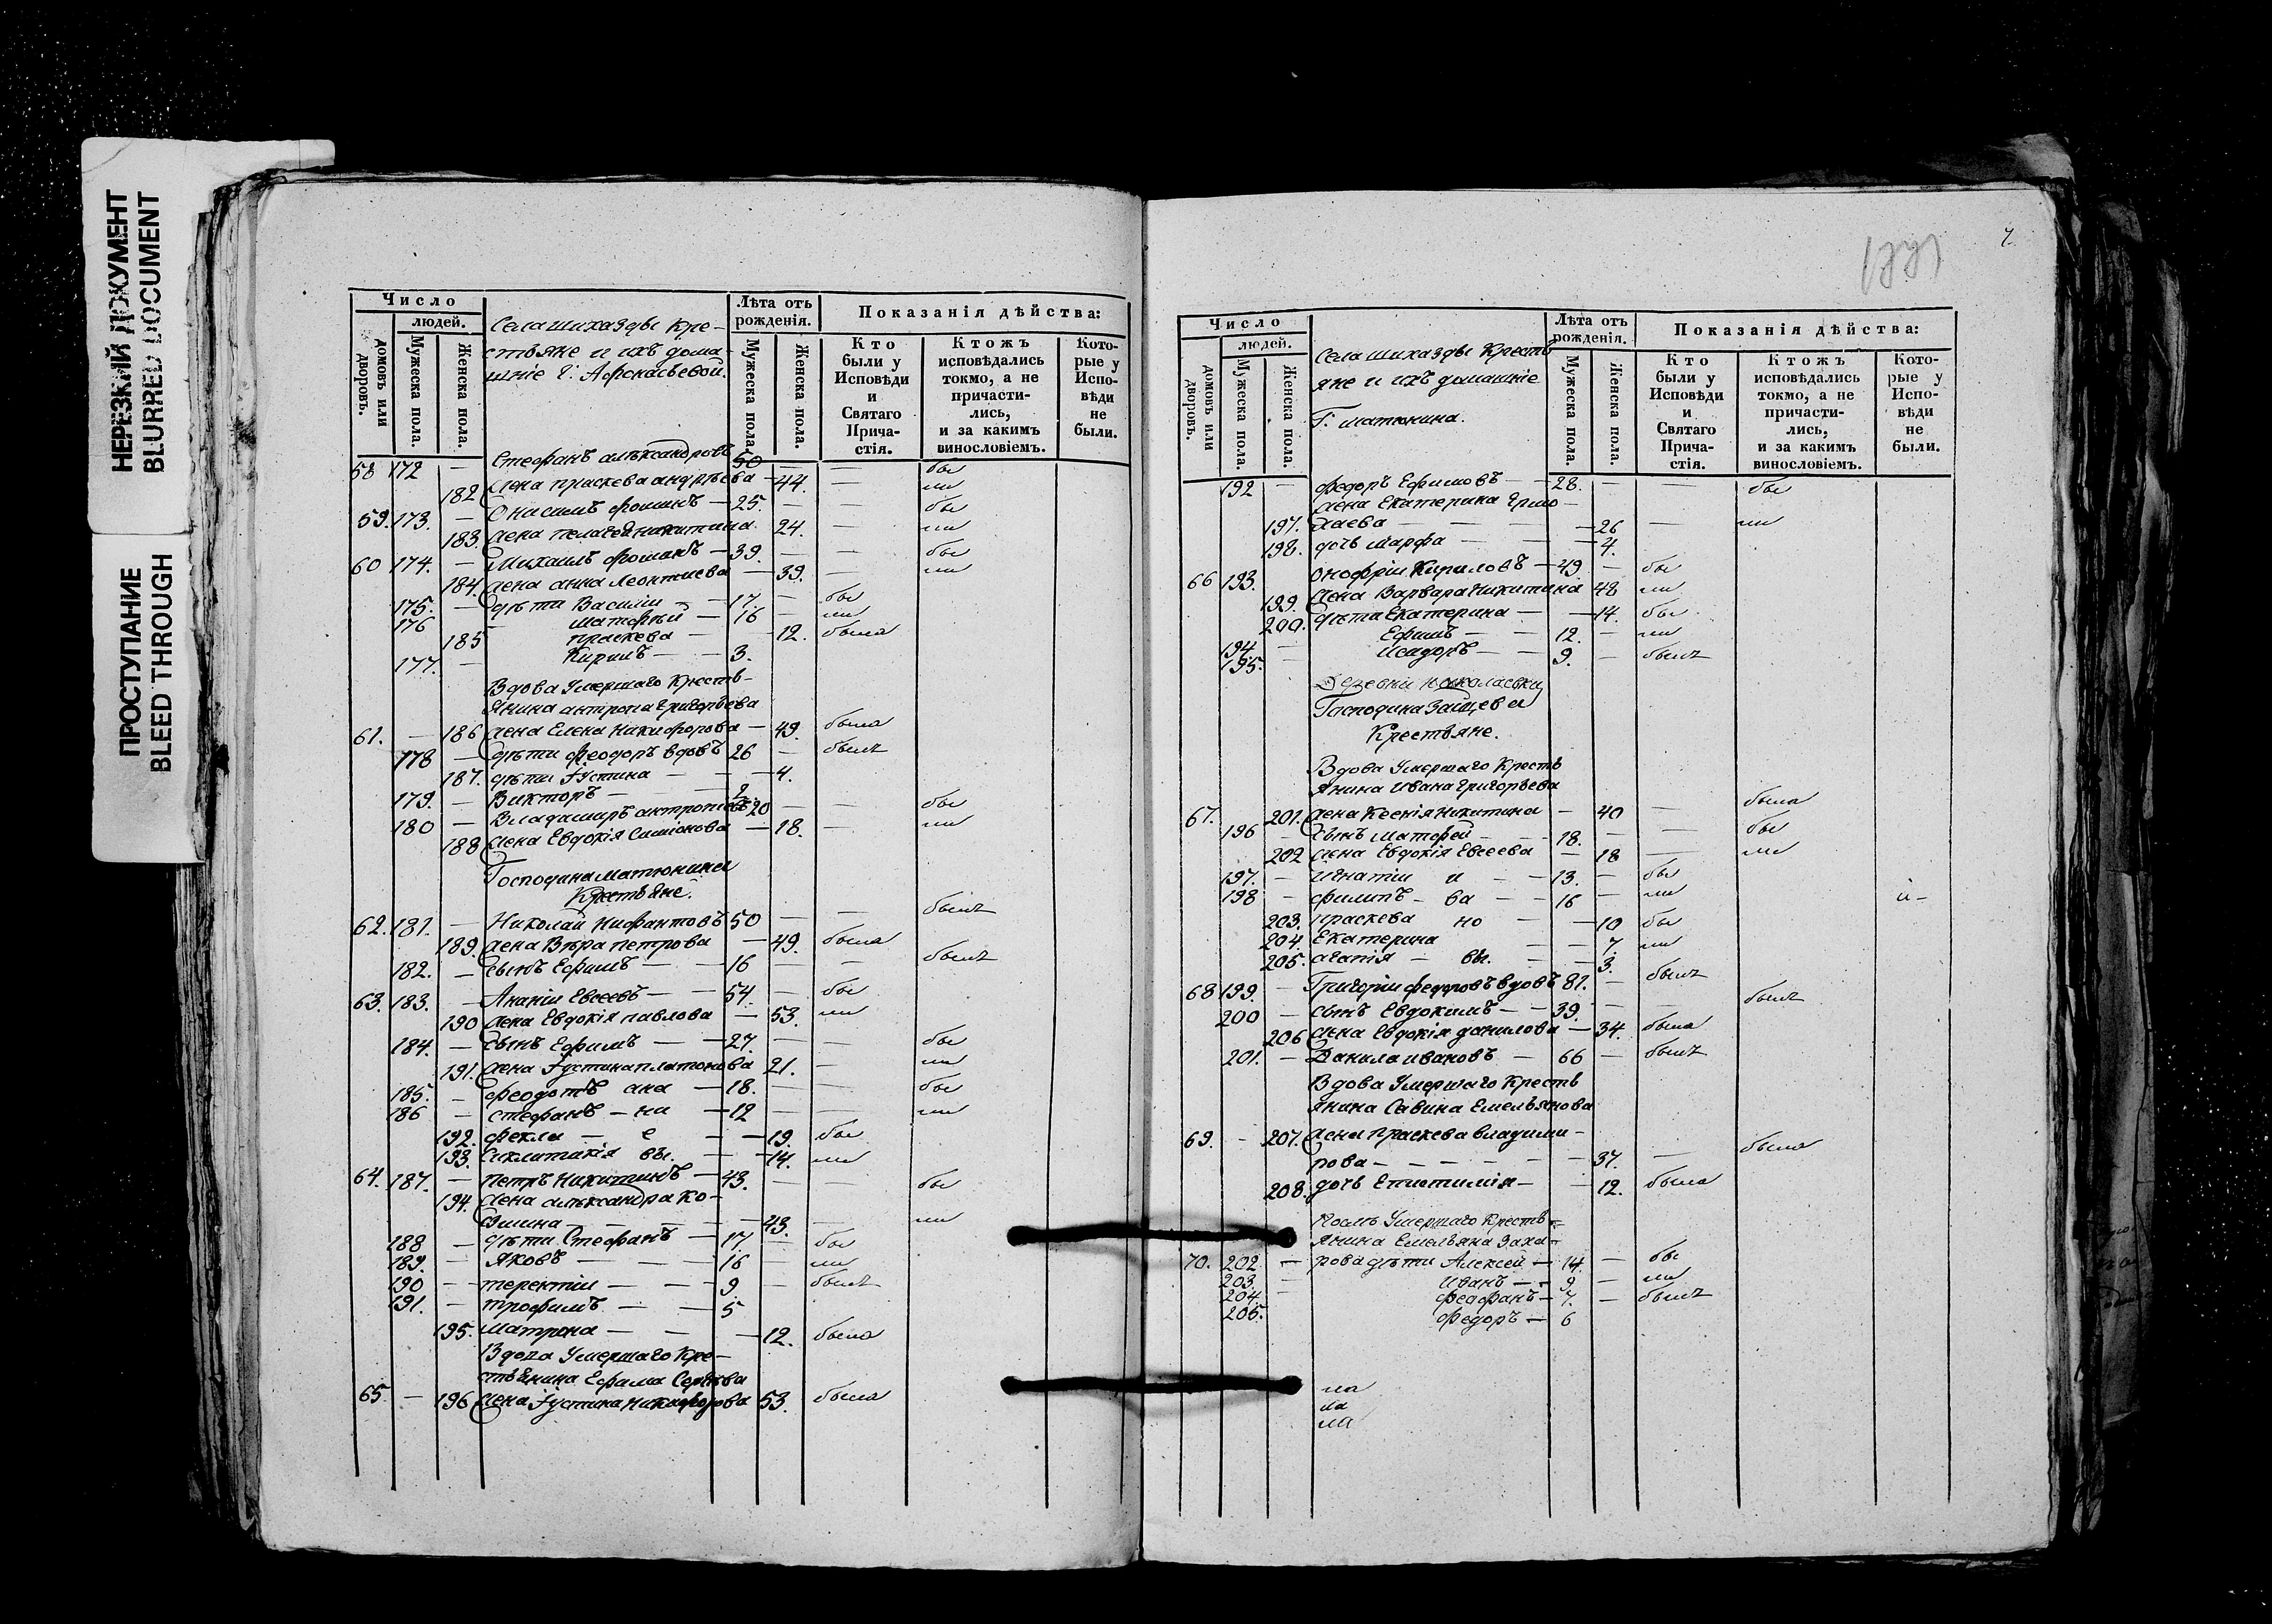 НЕРЕЗКИЙ ДОКУМЕНТ
BLURRED DOCUMENT
ПРОСТУПАНИЕ
BLEED THROUGH
Число
людей.
домовъ или дворовъ.
Мужеска пола.
Женска пола.
Села шихазды Кре-
стьяне и ихъ дома-
шніе Г: Афонасьевой.
Лѣта отъ рожденія.
Мужеска пола.
Женска пола.
Показанія дѣйства:
Кто были у Исповѣди и Святаго Прича-стія.
Ктожъ исповѣдались токмо, а не причасти-лись, и за какимъ винословіемъ.
Кото-рые у Испо-вѣди не были.
58 172 — Стефанъ алѣксандровъ 50 — — бы
182 жена праскева андрѣева — 44. — ли
59. 173. — Онисимъ фоминъ — 25. — — бы
183. жена пелагея никитина 24. — ли
60 174. — Михаилъ фоминъ — 39. — — бы
184. жена анна Леонтиева — 39. — ли
175. — дѣти Василіи — 17. — бы
176 — матфей — 16 — ли
185 праскева — 12. была
177. — Кирилъ — — 3.
Вдова Умершаго Кресть-
янина антропа григорьева
61. — 186 жена Елена Никифорова — 49. была
178 — дѣти феодоръ вдовъ 26 — былъ
187. дѣти Іустина — — 4.
179. — Викторъ — — 2
180 — Владимиръ антроповъ 20 — — бы
188 жена Евдокія Симіонова — 18. — ли
Господина матюнина
Крестьяне.
62. 181. — Николай Нифантовъ 50 — — былъ
189. жена Вѣра петрова — 49. была
182. — сынъ Ефимъ — — 16 — — былъ
63. 183. — Ананіи Евсеевъ — — 54. — бы
190 жена Евдокія павлова — 53. ли
184. — сынъ Ефимъ — — 27. — — бы
191. жена Іустина платонова 21. — ли
185. — феодотъ ана — 18. — — бы
186 — стефанъ — ни — 12 — — ли
192. фекла — е — — 19. бы
193. Секлитикія вы. — — 14. ли
64. 187. — петръ Никитинъ — 43. — — бы
194. жена алѣксандра Ко-
змина — — — — 43. — ли
188 — дѣти Стефанъ — 17. — бы
189. — Яковъ — — — 16 — ли
190 — терентіи — — 9 — былъ
191. — трофимъ — — 5
195. матрона — — — 12. была
Вдова Умершаго Кре-
стьянина Ефима Сергѣева
65 — 196 жена Іустина Никифорова 53. была
7.
1771
Число
людей.
домовъ или дворовъ.
Мужеска пола.
Женска пола.
Села шихазды Кресть
яне и ихъ домашніе
Г. матюнина.
Лѣта отъ рожденія.
Мужеска пола.
Женска пола.
Показанія дѣйства:
Кто были у Исповѣди и Святаго Прича-стія.
Ктожъ исповѣдались токмо, а не причасти-лись, и за какимъ винословіемъ.
Кото-рые у Испо-вѣди не были.
192 — федоръ Ефимовъ — — 28. — — бы
жена Екатерина Ермо-
197. лаева — — — — 26 — ли
198. дочь марфа — — — 4.
66 193. Онофріи Кириловъ — 49 — бы
199. жена Варвара Никитина 48 ли
200. дѣти Екатерина — — 14. бы
194 — Ефимъ — — 12. — ли
195. — Исидоръ — — 9. — былъ
Деревни николаевки
Господина Зайцева
Крестьяне.
Вдова Умершаго Кресть
янина Ивана григорьева
67. 201. жена Ксенія Никитина — 40 — была
196 — сынъ матфей — — 18. — — бы
202 жена Евдокія Евсеева — 18 — ли
197. — игнатіи и — — 13. — бы
198 — филипъ — ва — — 16 — ли
203. праскева но — — 10 бы
204. Екатерина — — 7. ли
205. агапія — вы. — — 3.
68 199. — Григоріи федоровъ вдовъ 81. — былъ
200 — сынъ Евдокимъ — — 39. — — былъ
206 жена Евдокія данилова — 34. была
201. — Данила ивановъ — 66 — былъ
Вдова Умершаго Кресть
янина Савина Емельянова
69. — 207. жена праскева владими-
рова — — — — — 37. — была
208. дочь — — 12. была
Умершаго Кресть-
янина Емельяна Заха-
70. 202 — рова дѣти Алексей — 14 — бы
203. — Иванъ — — 9 — ли
204. — 7. — былъ
205. федоръ — 6
ла
ла
ла